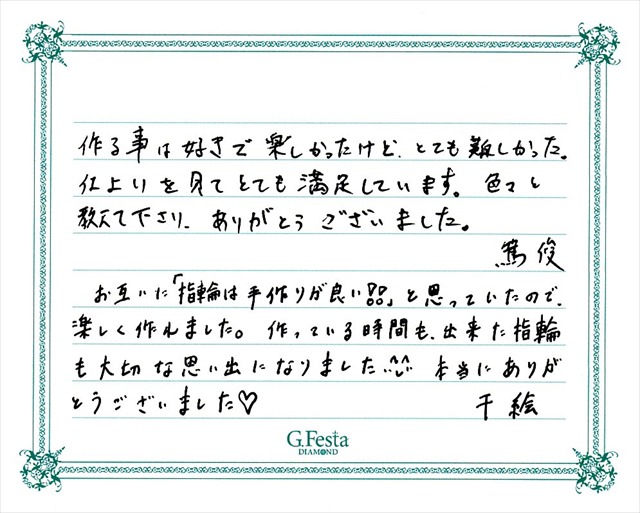 作る事は好きで楽しかったけど、とても難しかった。
仕上りを見てとても満足しています。色々と
教えて下さり、ありがとうございました。
篤俊
お互いに「指輪は手作りが良い!!」と思っていたので、
楽しく作れました。作っている時間も、出来た指輪
も大切な思い出になりました^^ 本当にありが
とうございました♡
千絵
G.Festa
DIAMOND